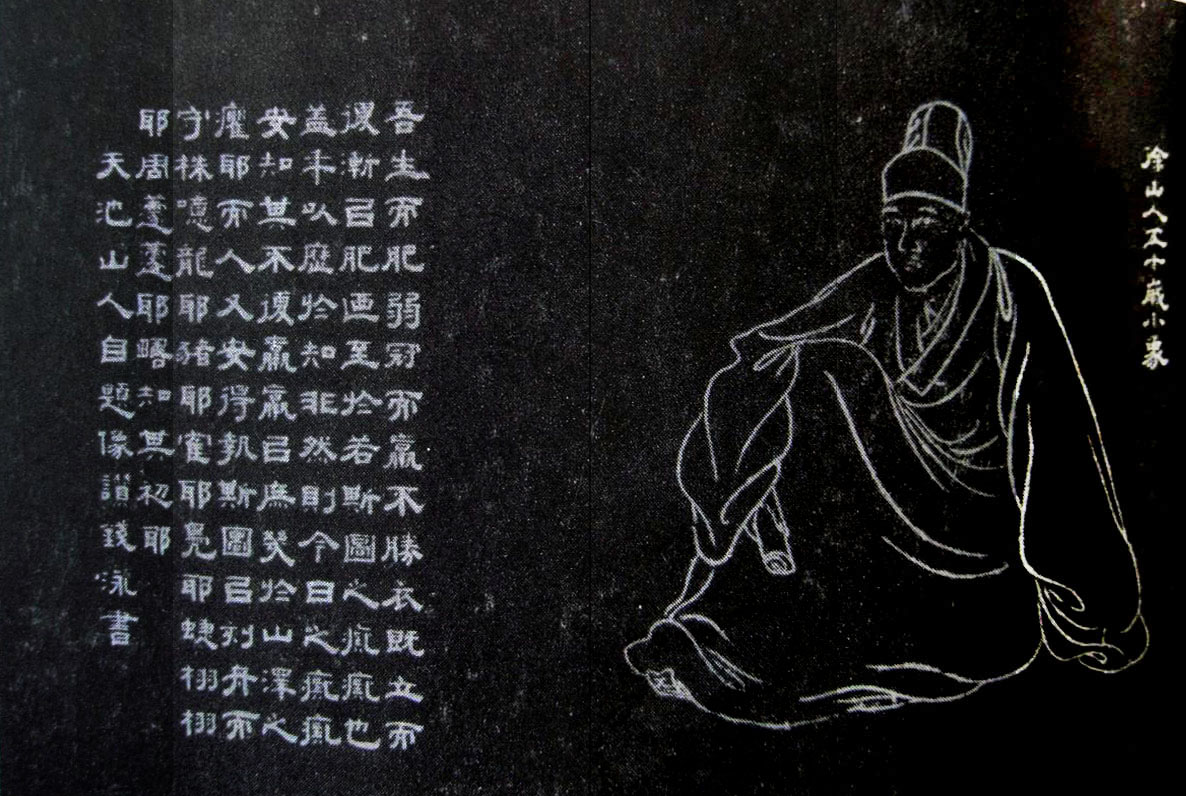 徐山人五十歲小象
吾生而肥弱冠而羸不勝衣既立而
復漸㠯肥迺至於若斯圖之痴痴也
蓋年以歷於知非然則今日之痴痴
安知其不復羸羸㠯庶幾於山澤之
癯耶而人又安得執斯圖㠯刻舟而
守株噫龍耶猪耶鶴耶鳧耶蝶栩栩
耶周蘧蘧耶疇知其初耶
天池山人自題像讃錢泳書